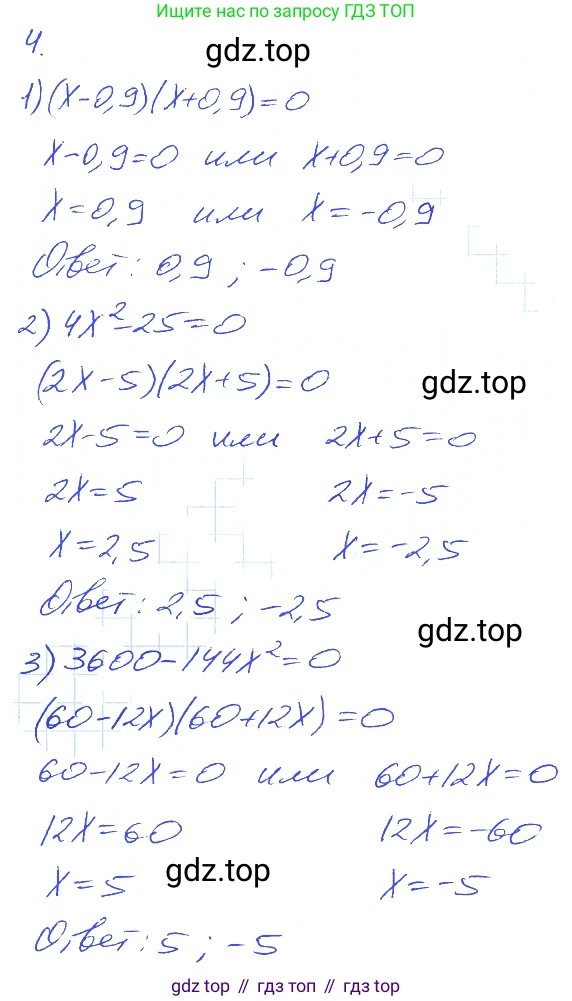 Ищите по запросу ГДЗ ТОП
4.
gdz.top
1) (x-0,9)(x+0,9)=0
x-0,9=0 или x+0,9=0
x=0,9 или x=-0,9
Ответ: 0,9; -0,9
2) 4x²-25=0
(2x-5)(2x+5)=0
gdz.top
2x-5=0 или 2x+5=0
2x=5 2x=-5
x=2,5 x=-2,5
Ответ: 2,5; -2,5
gdz.top
3) 3600-144x²=0
(60-12x)(60+12x)=0
60-12x=0 или 60+12x=0
12x=60 12x=-60
gdz.top
x=5 x=-5
Ответ: 5; -5
gdz top // гдз топ // гдз.топ